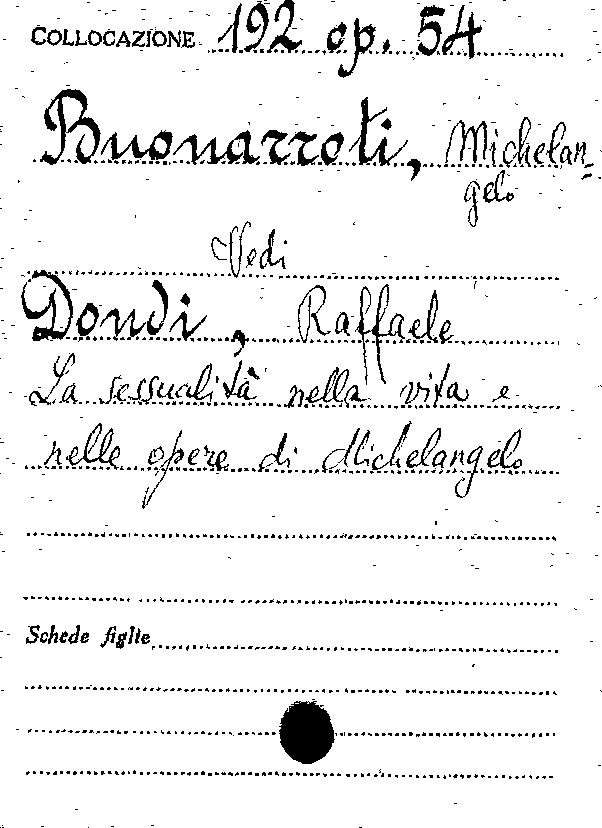 COLLOCAZIONE 192 op. 54
Buonarroti, Michelan-
gelo
Vedi
Dondi, Raffaele
La sessualità nella vita e
nelle opere di Michelangelo
Schede figlie